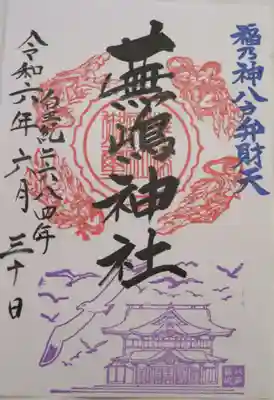 福乃神八方弁財天
蕪嶋神社
皇紀二六八四年
令和六年六月三十日